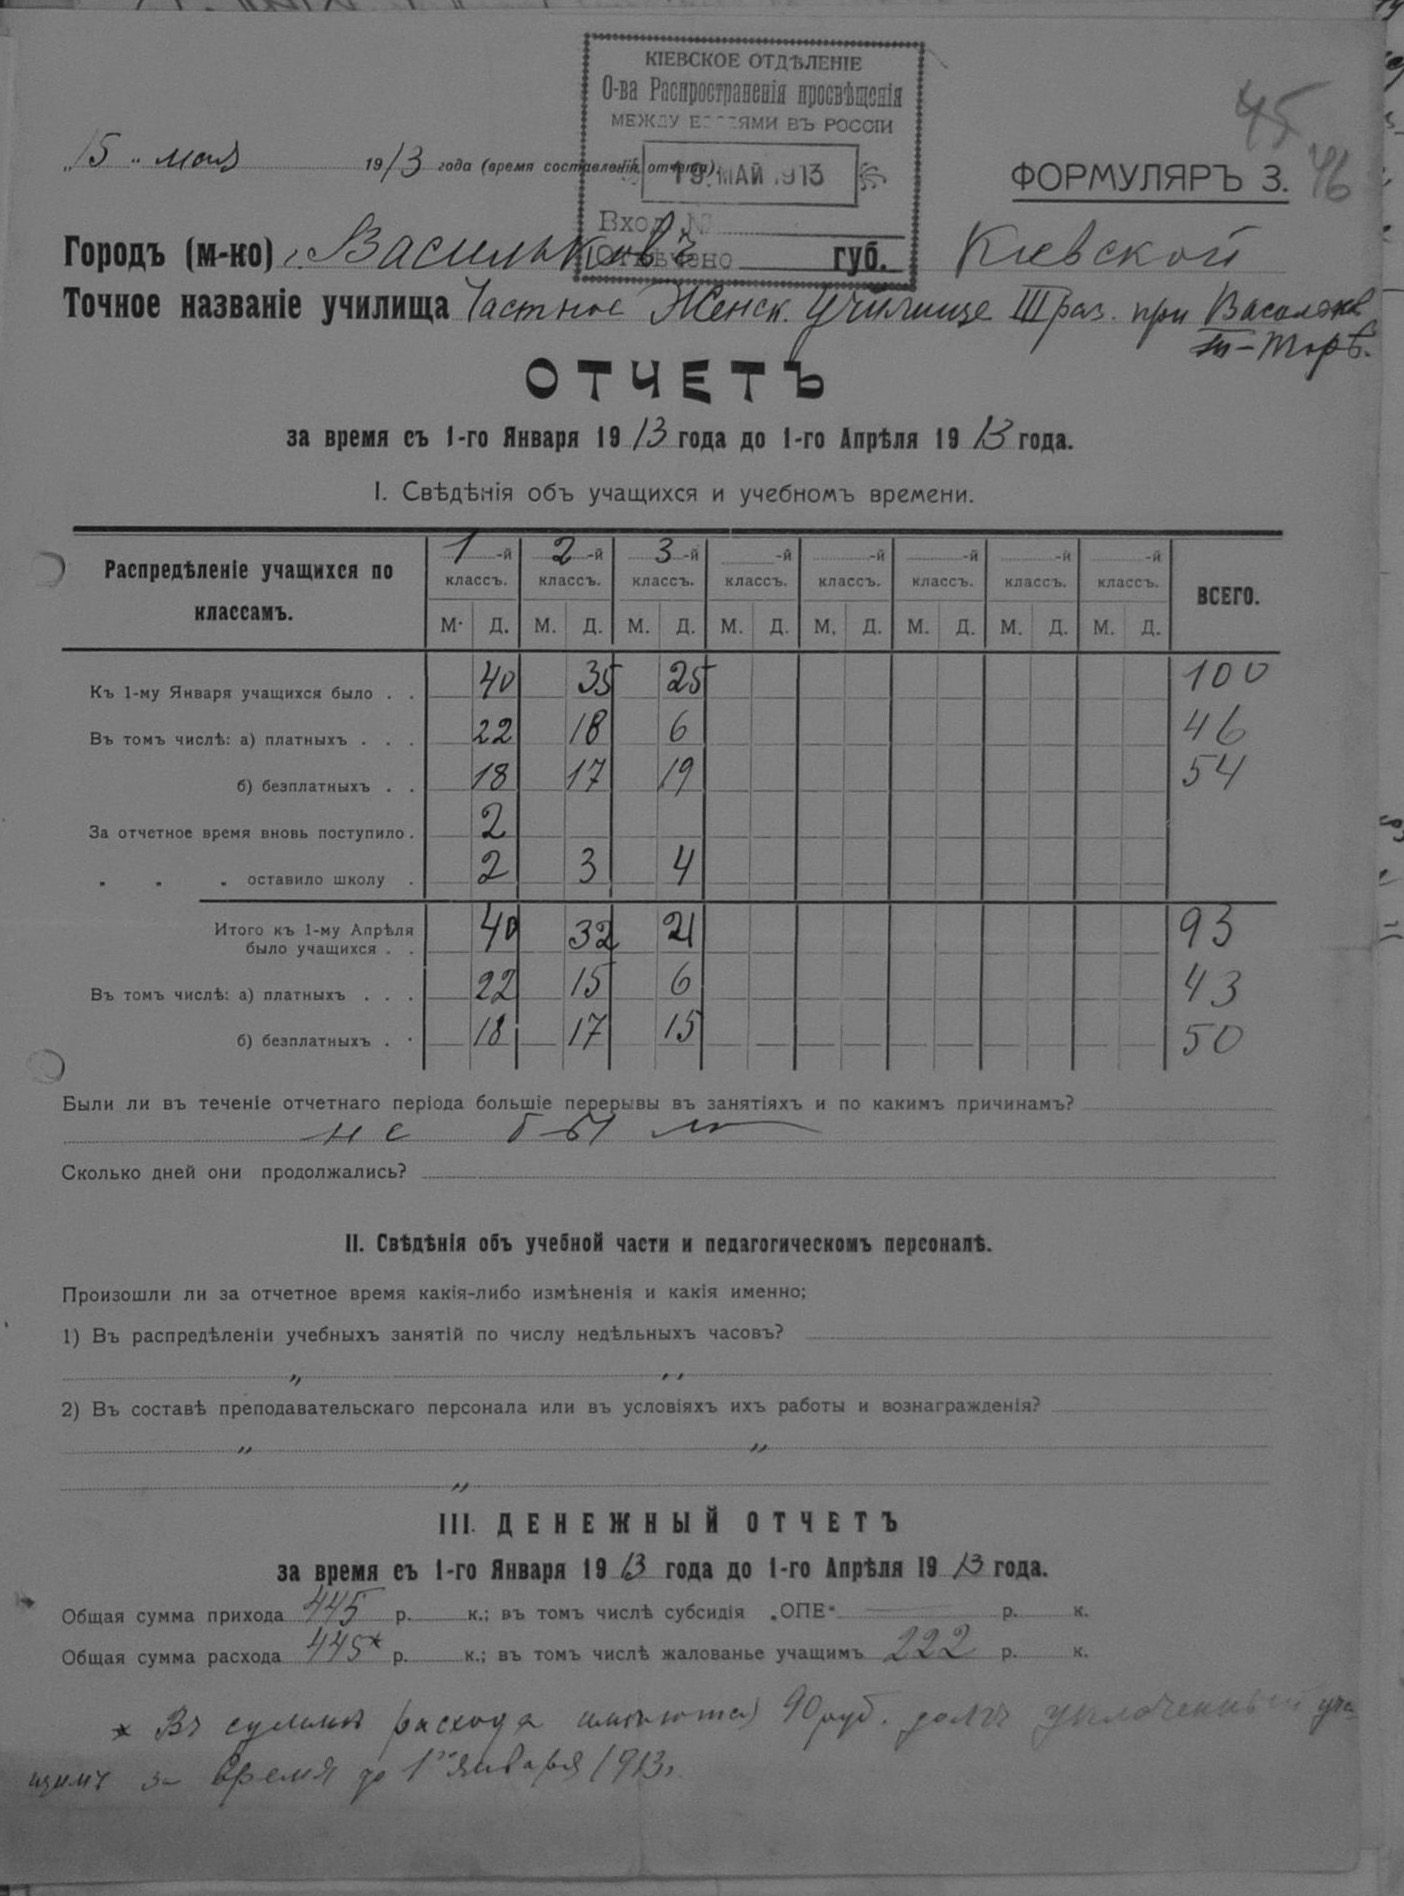 КІЕВСКОЕ ОТДѢЛЕНІЕ
О-ва Распространенія просвѣщенія
МЕЖДУ ЕВРЕЯМИ ВЪ РОССІИ
19 МАЙ 1913
Вход. №
Отвѣчено
45
46
„15„ мая 1913 года (время составленія отчета).
ФОРМУЛЯРЪ 3.
Городъ (м-ко) Васильковъ губ. Кіевской
Точное названіе училища Частное Женск. Училище III раз. при Васильк.
Т-Торѣ.
ОТЧЕТЪ
за время съ 1-го Января 1913 года до 1-го Апрѣля 1913 года.
I. Свѣдѣнія объ учащихся и учебномъ времени.
Распредѣленіе учащихся по классамъ. 1-й классъ. 2-й классъ. 3-й классъ. -й классъ. -й классъ. -й классъ. -й классъ. -й классъ. ВСЕГО.
М. Д. М. Д. М. Д. М. Д. М. Д. М. Д. М. Д. М. Д.
Къ 1-му Января учащихся было . . 40 35 25 100
Въ томъ числѣ: а) платныхъ . . . 22 18 6 46
б) безплатныхъ . . 18 17 19 54
За отчетное время вновь поступило . 2
„ „ „ оставило школу . 2 3 4
Итого къ 1-му Апрѣля
было учащихся . . 40 32 21 93
Въ томъ числѣ: а) платныхъ . . . 22 15 6 43
б) безплатныхъ . . 18 17 15 50
Были ли въ теченіе отчетнаго періода большіе перерывы въ занятіяхъ и по какимъ причинамъ?
не было
Сколько дней они продолжались?
II. Свѣдѣнія объ учебной части и педагогическомъ персоналѣ.
Произошли ли за отчетное время какія-либо измѣненія и какія именно;
1) Въ распредѣленіи учебныхъ занятій по числу недѣльныхъ часовъ?
„ „
2) Въ составѣ преподавательскаго персонала или въ условіяхъ ихъ работы и вознагражденія?
„ „
„
III. ДЕНЕЖНЫЙ ОТЧЕТЪ
за время съ 1-го Января 1913 года до 1-го Апрѣля 1913 года.
Общая сумма прихода 445 р. к.; въ томъ числѣ субсидія „ОПЕ“ — р. к.
Общая сумма расхода 445* р. к.; въ томъ числѣ жалованье учащимъ 222 р. к.
* Въ суммѣ расхода имѣются 90 руб. долгъ уплоченный уча-
щимъ за время до 1го января 1913.